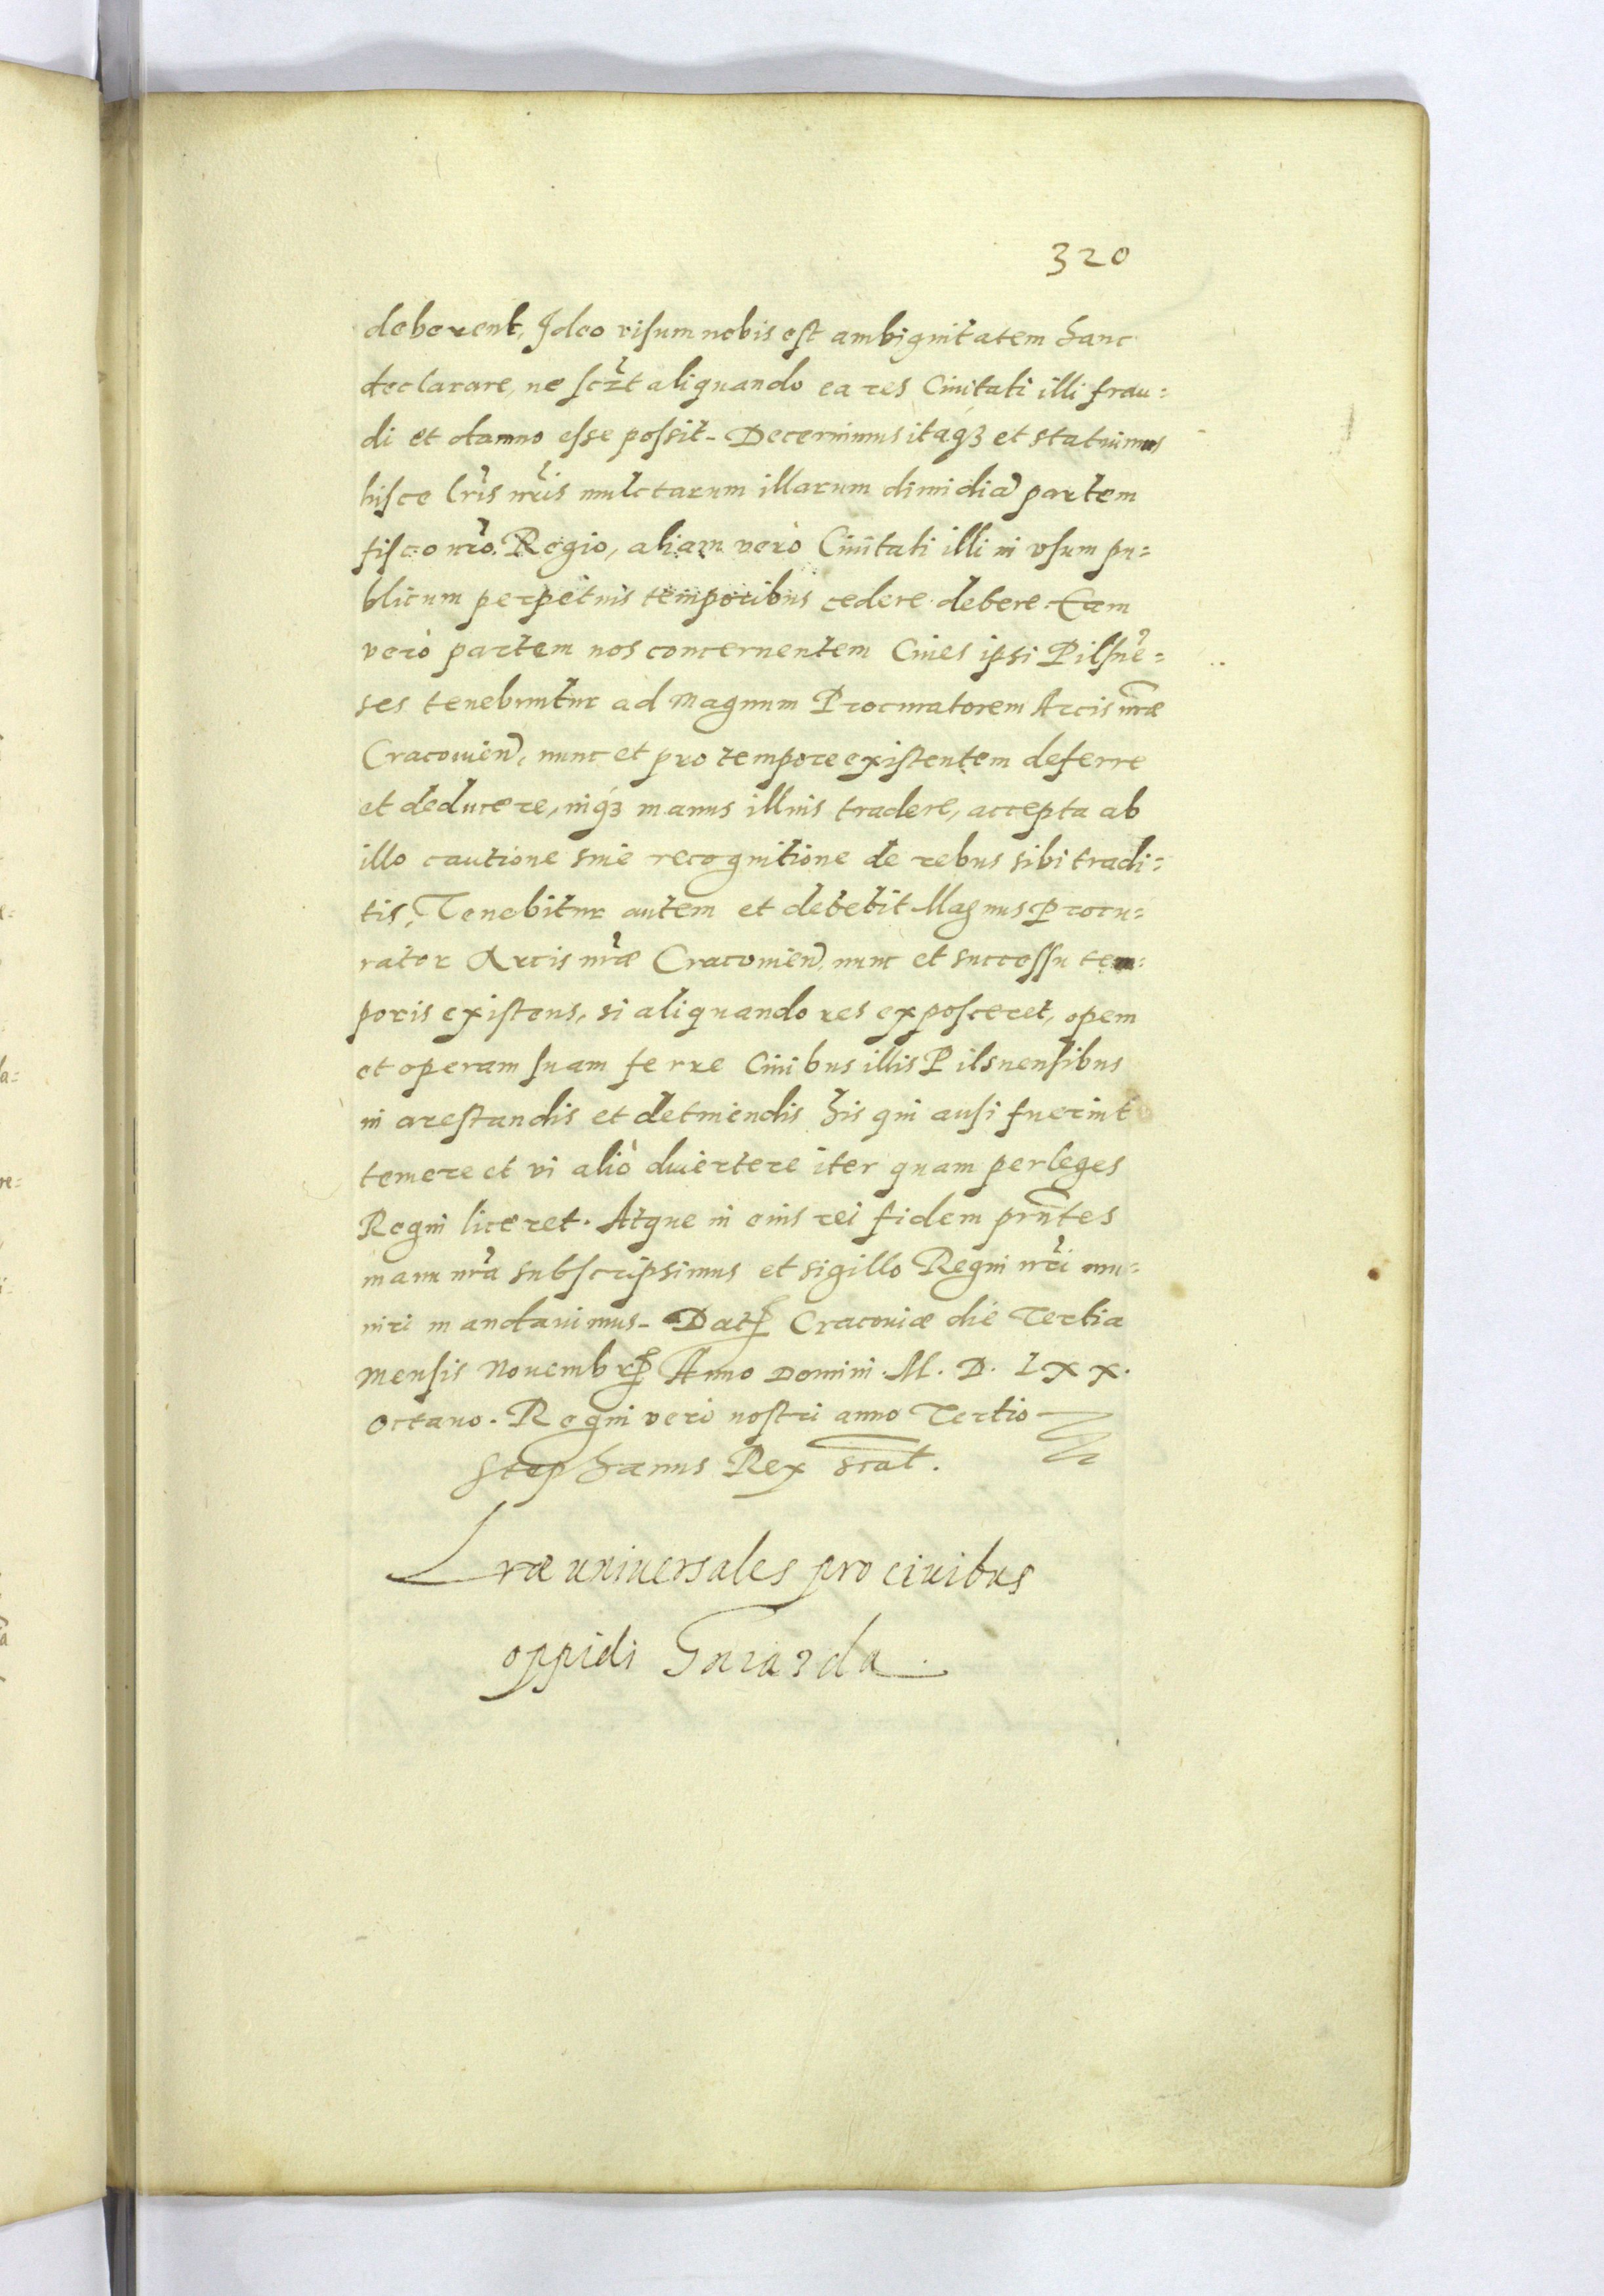 320
deberent, Ideo visum nobis est ambiguitatem hanc
declarare, ne scꝛt aliquando ea res Ciuitati illi frau=
di et damno esse possit. Decernimus itaqꝫ et statuimus
hisce lr̃is nr̃is mulctarum illarum dimidiã partem
fisco nr̃o Regio, aliam verò Ciuitati illi in vsum pu=
blicum perpetuis temporibus cedere debere. Eam
verò partem nos concernentem Ciues ipsi Pilsnẽ=
ses tenebuntur ad Magnum Procuratorem Arcis nr̃æ
Cracouieñ, nunc et pro tempore existentem deferre
et deducere, inqꝫ manus illius tradere, accepta ab
illo cautione siue recognitione de rebus sibi tradi=
tis, Tenebitur autem et debebit Magnus Procu=
rator Arcis nr̃æ Cracouieñ, nunc et successu tem=
poris existens, si aliquando res exposceret, opem
et operam suam ferre Ciuibus illis Pilsnensibus
in arestandis et detinendis his qui ausi fuerint
temere et vi aliò diuertere iter quam per leges
Regni liceret. Atque in eius rei fidem pñtes
manu nr̃a subscripsimus et sigillo Regni nr̃i mu=
niri mandauimus. Datꝭ Cracouiæ die Tertia
Mensis Nouembrꝭ Anno Domini. M. D. LXX.
Octauo. Regni verò nostri anno Tertio
Stephanus Rex sc̃at.
Lr̃æ uniuersales pro ciuibus
oppidi